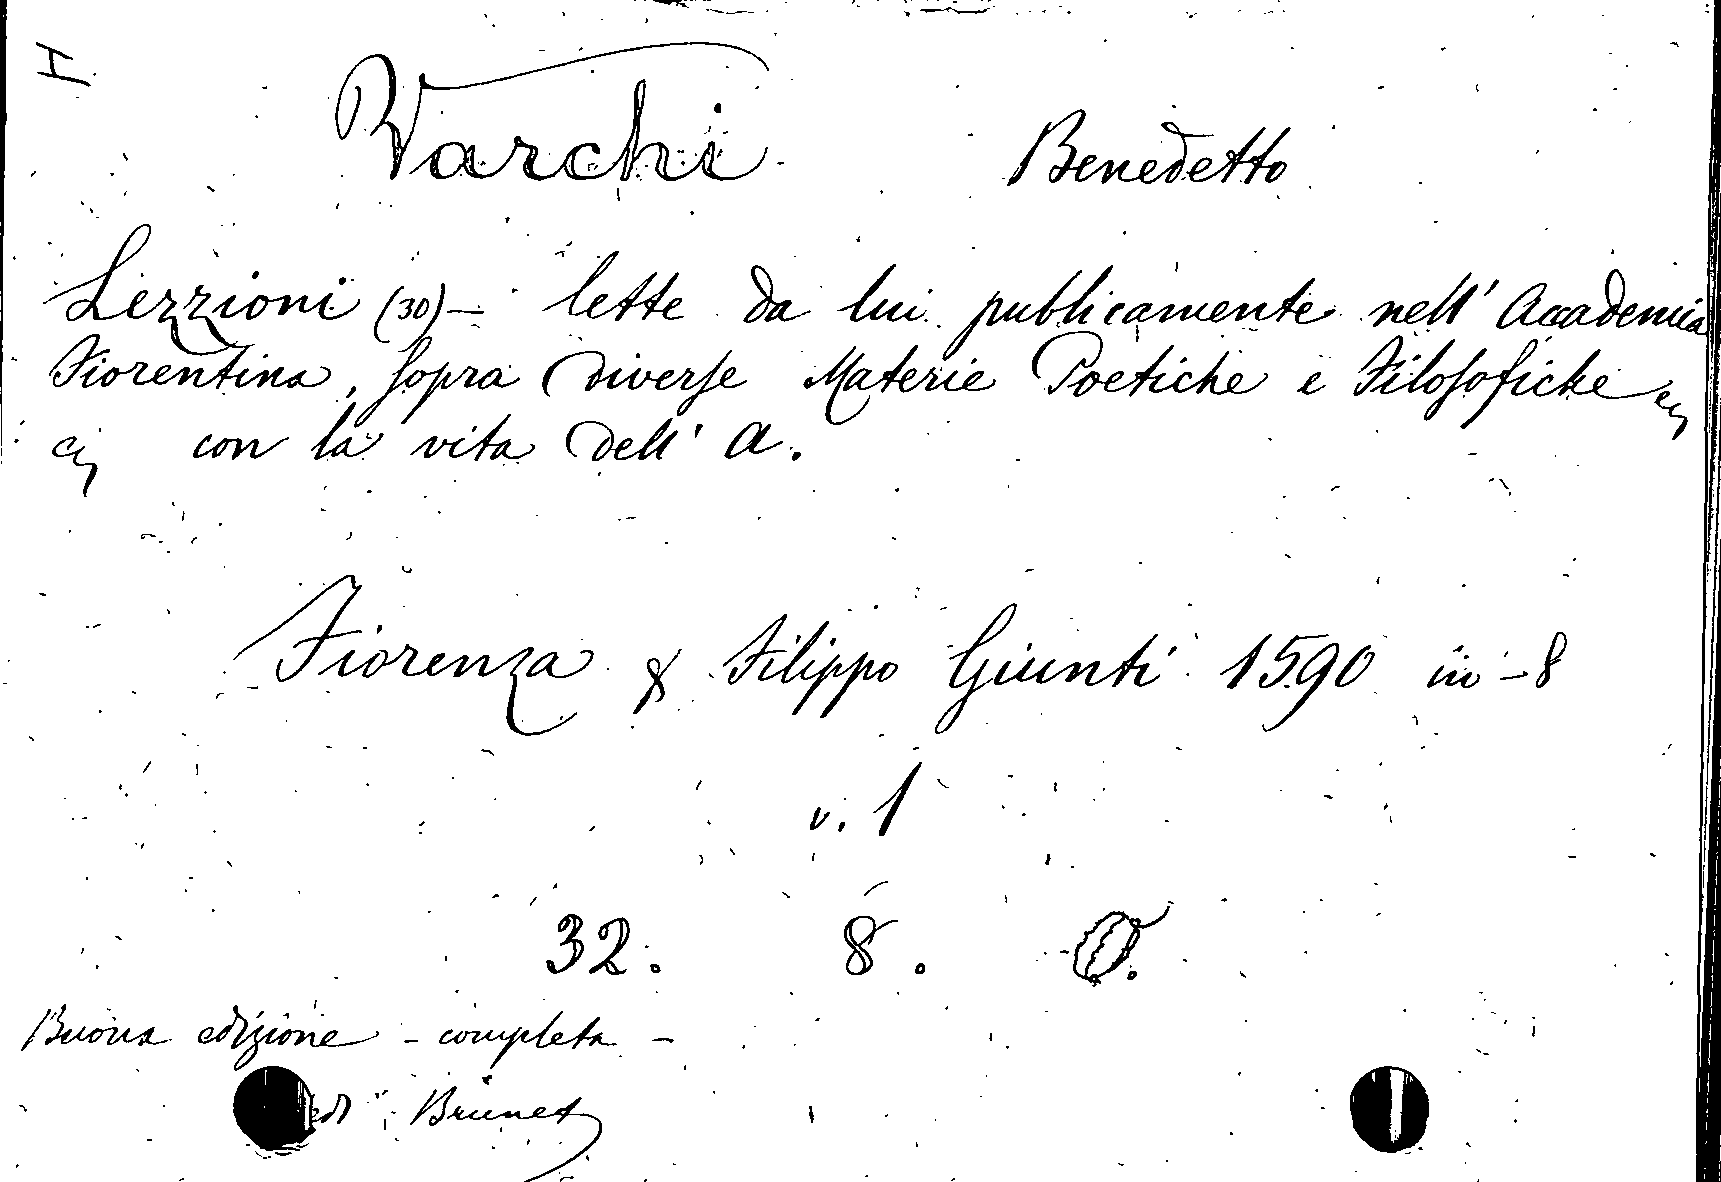 I
Varchi Benedetto
Lezzioni (30) — lette da lui publicamente nell' Accademia
Fiorentina, sopra diverse Materie Poetiche e Filosofiche
con la vita dell' A.
Fiorenza Filippo Giunti 1590 in-8
v. 1
32. 8.
Buona edizione - completa -
Brunet